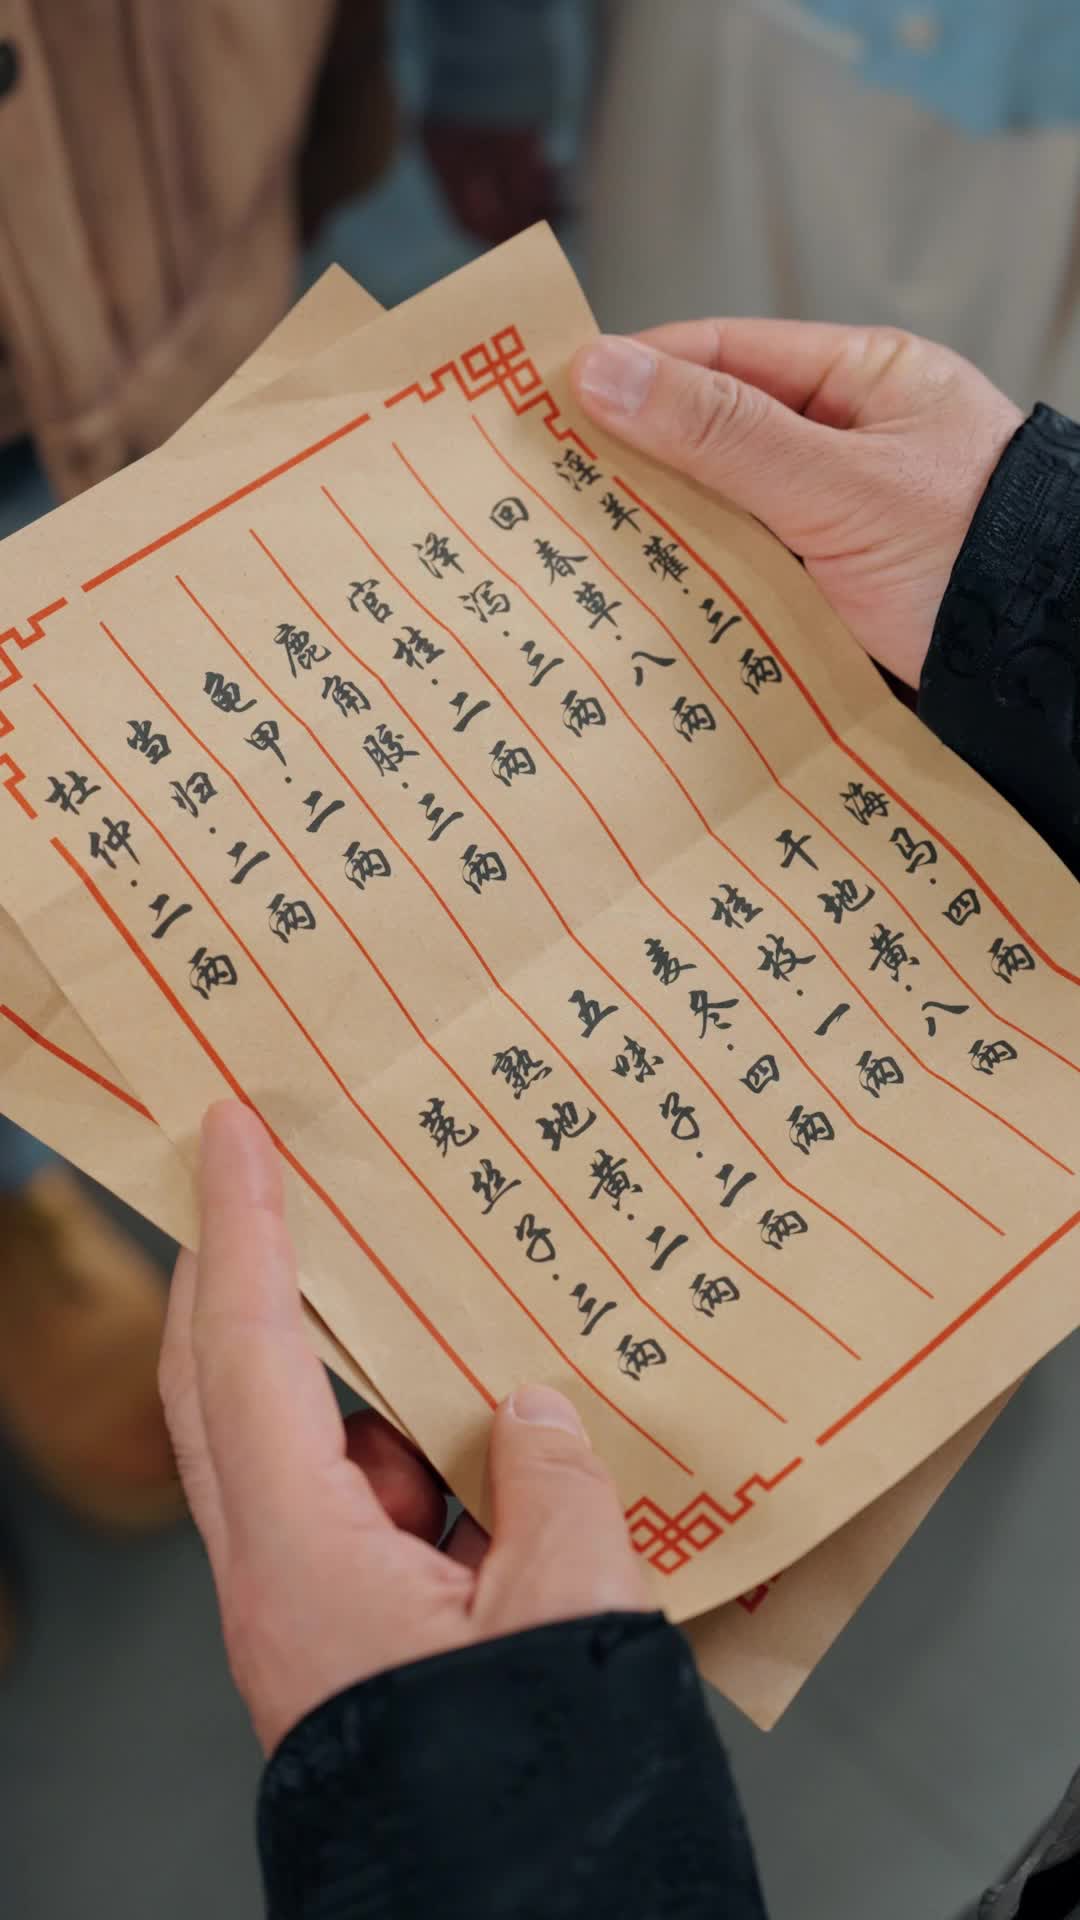 淫羊藿·三两 海马·四两
回春草·八两 干地黄·八两
泽泻·三两 桂枝·一两
官桂·二两 麦冬·四两
鹿角胶·三两 五味子·二两
龟甲·二两 熟地黄·二两
当归·二两 菟丝子·三两
杜仲·二两